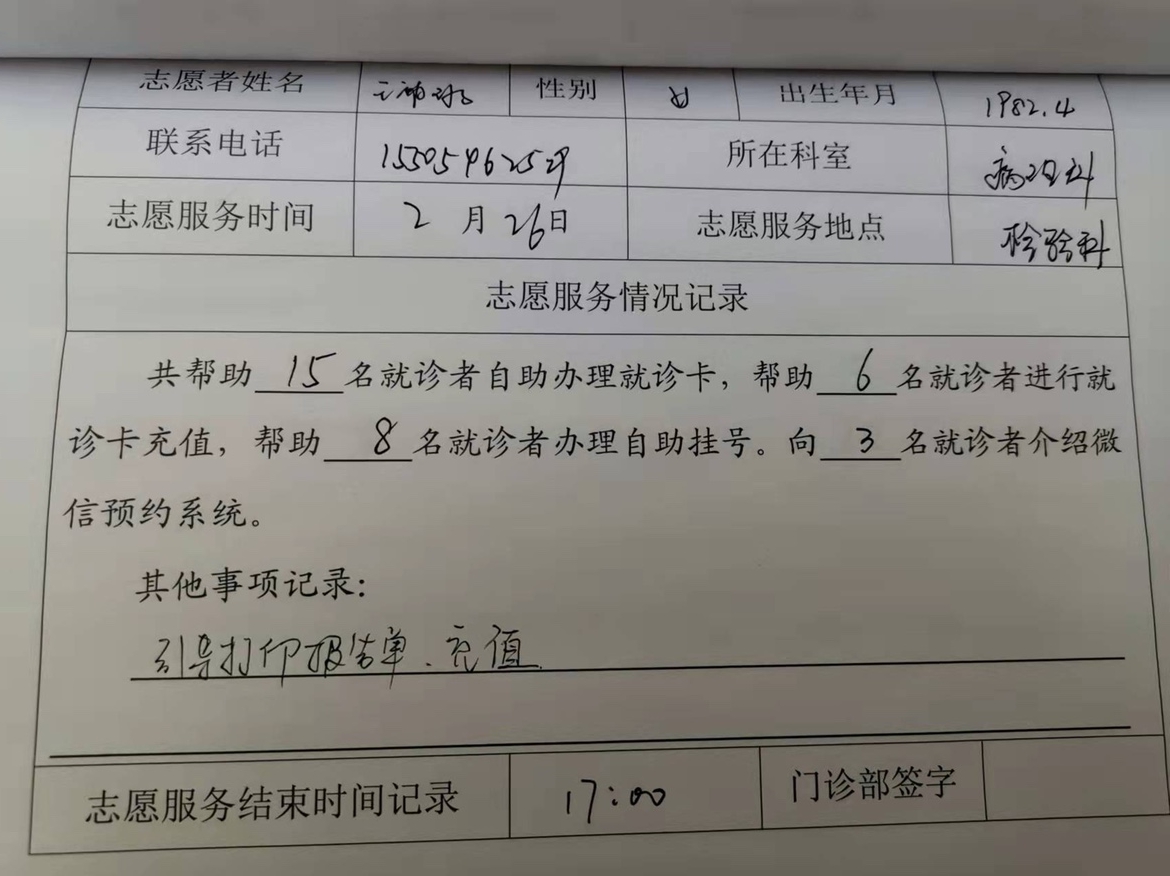 志愿者姓名 性别 女 出生年月 1982.4
联系电话 所在科室 病理科
志愿服务时间 2 月 26 日 志愿服务地点 检验科
志愿服务情况记录
共帮助 15 名就诊者自助办理就诊卡，帮助 6 名就诊者进行就
诊卡充值，帮助 8 名就诊者办理自助挂号。向 3 名就诊者介绍微
信预约系统。
其他事项记录：
引导打印报告单、充值
志愿服务结束时间记录 17:00 门诊部签字